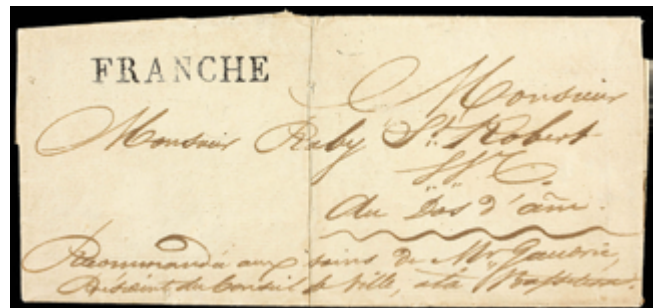 FRANCHE
Monsieur
Monsieur Raby St. Robert
au Dos d'âne.
Recommandée aux soins de Mr.
Président du Conseil de Ville, et à